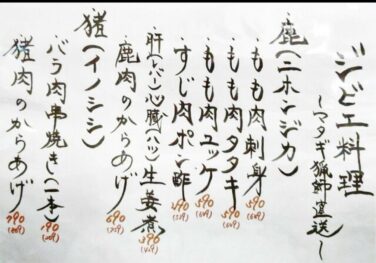 ジビエ料理
～マタギ猟師直送～
鹿(ニホンジカ)
・もも肉刺身 590(649)
・もも肉タタキ 590(649)
・もも肉ユッケ 590(649)
・すじ肉ポン酢 290(319)
・肝(レバー)心臓(ハツ)生姜煮 390(429)
・鹿肉のからあげ 690(759)
猪(イノシシ)
・バラ肉串焼き(一本) 190(209)
・猪肉のからあげ 790(869)